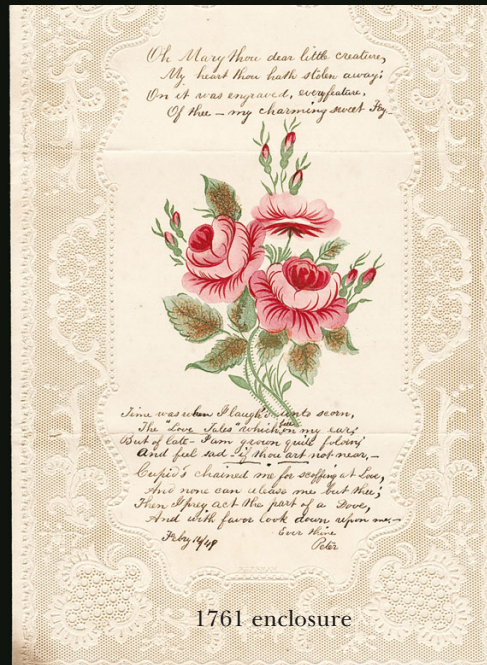 Oh Mary thou dear little creature,
My heart thou hath stolen away;
On it was engraved, every feature,
Of thee — my charming sweet Fay —
Time was when I laugh'd unto scorn,
The "Love Tales" which fell on my ear;
But of late - I am grown quite
And feel sad - if thou art not near, —
Cupid's chained me for scoffing at Love,
And none can release me but thee;
Then I prey act the part of a Dove,
And with favor look down upon me. —
Ever thine
Feby 14/49
Peter
1761 enclosure